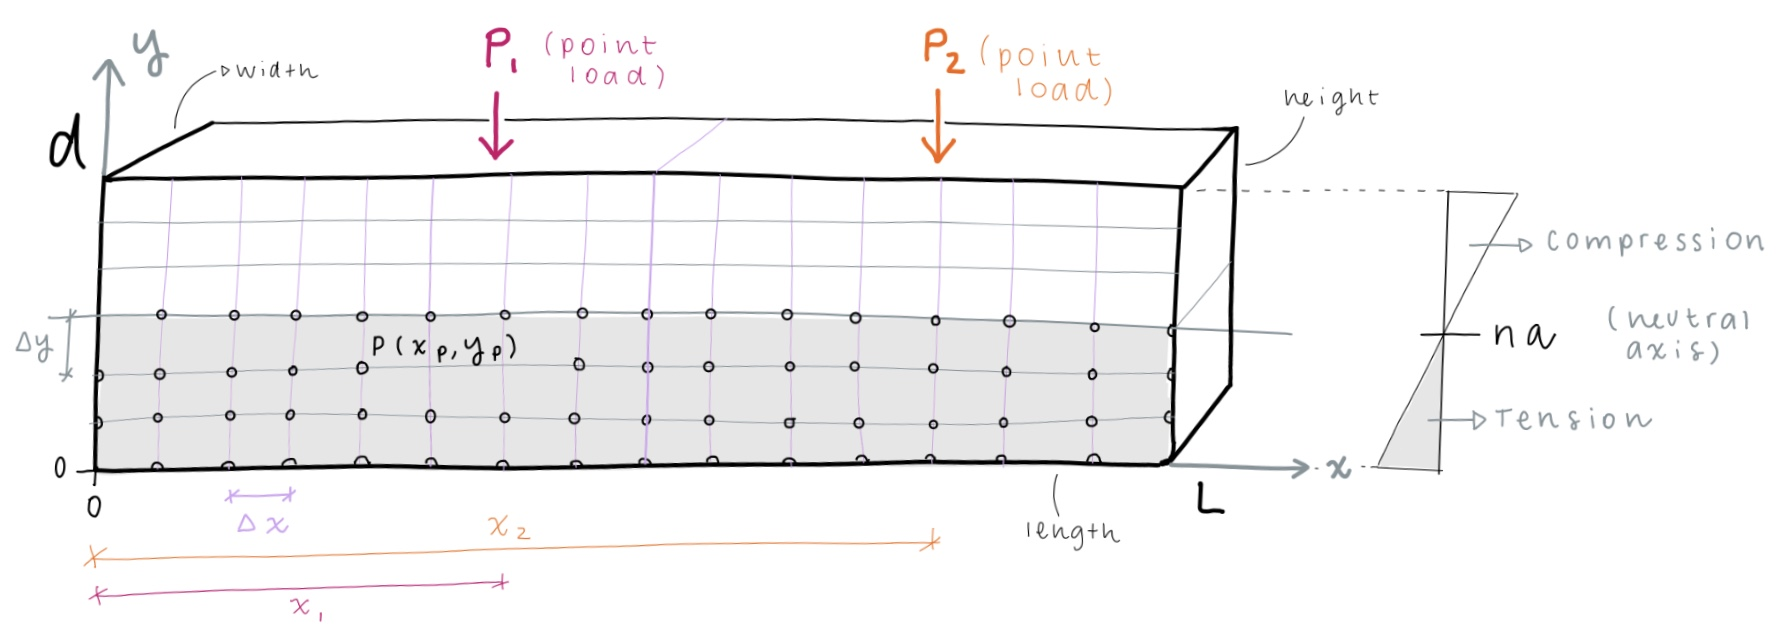 y
width
P₁ (point
load)
P₂ (point
load)
height
d
compression
Δy
P(xₚ, yₚ)
na (neutral
axis)
Tension
0
x
0
Δx
x₂
length
L
x₁